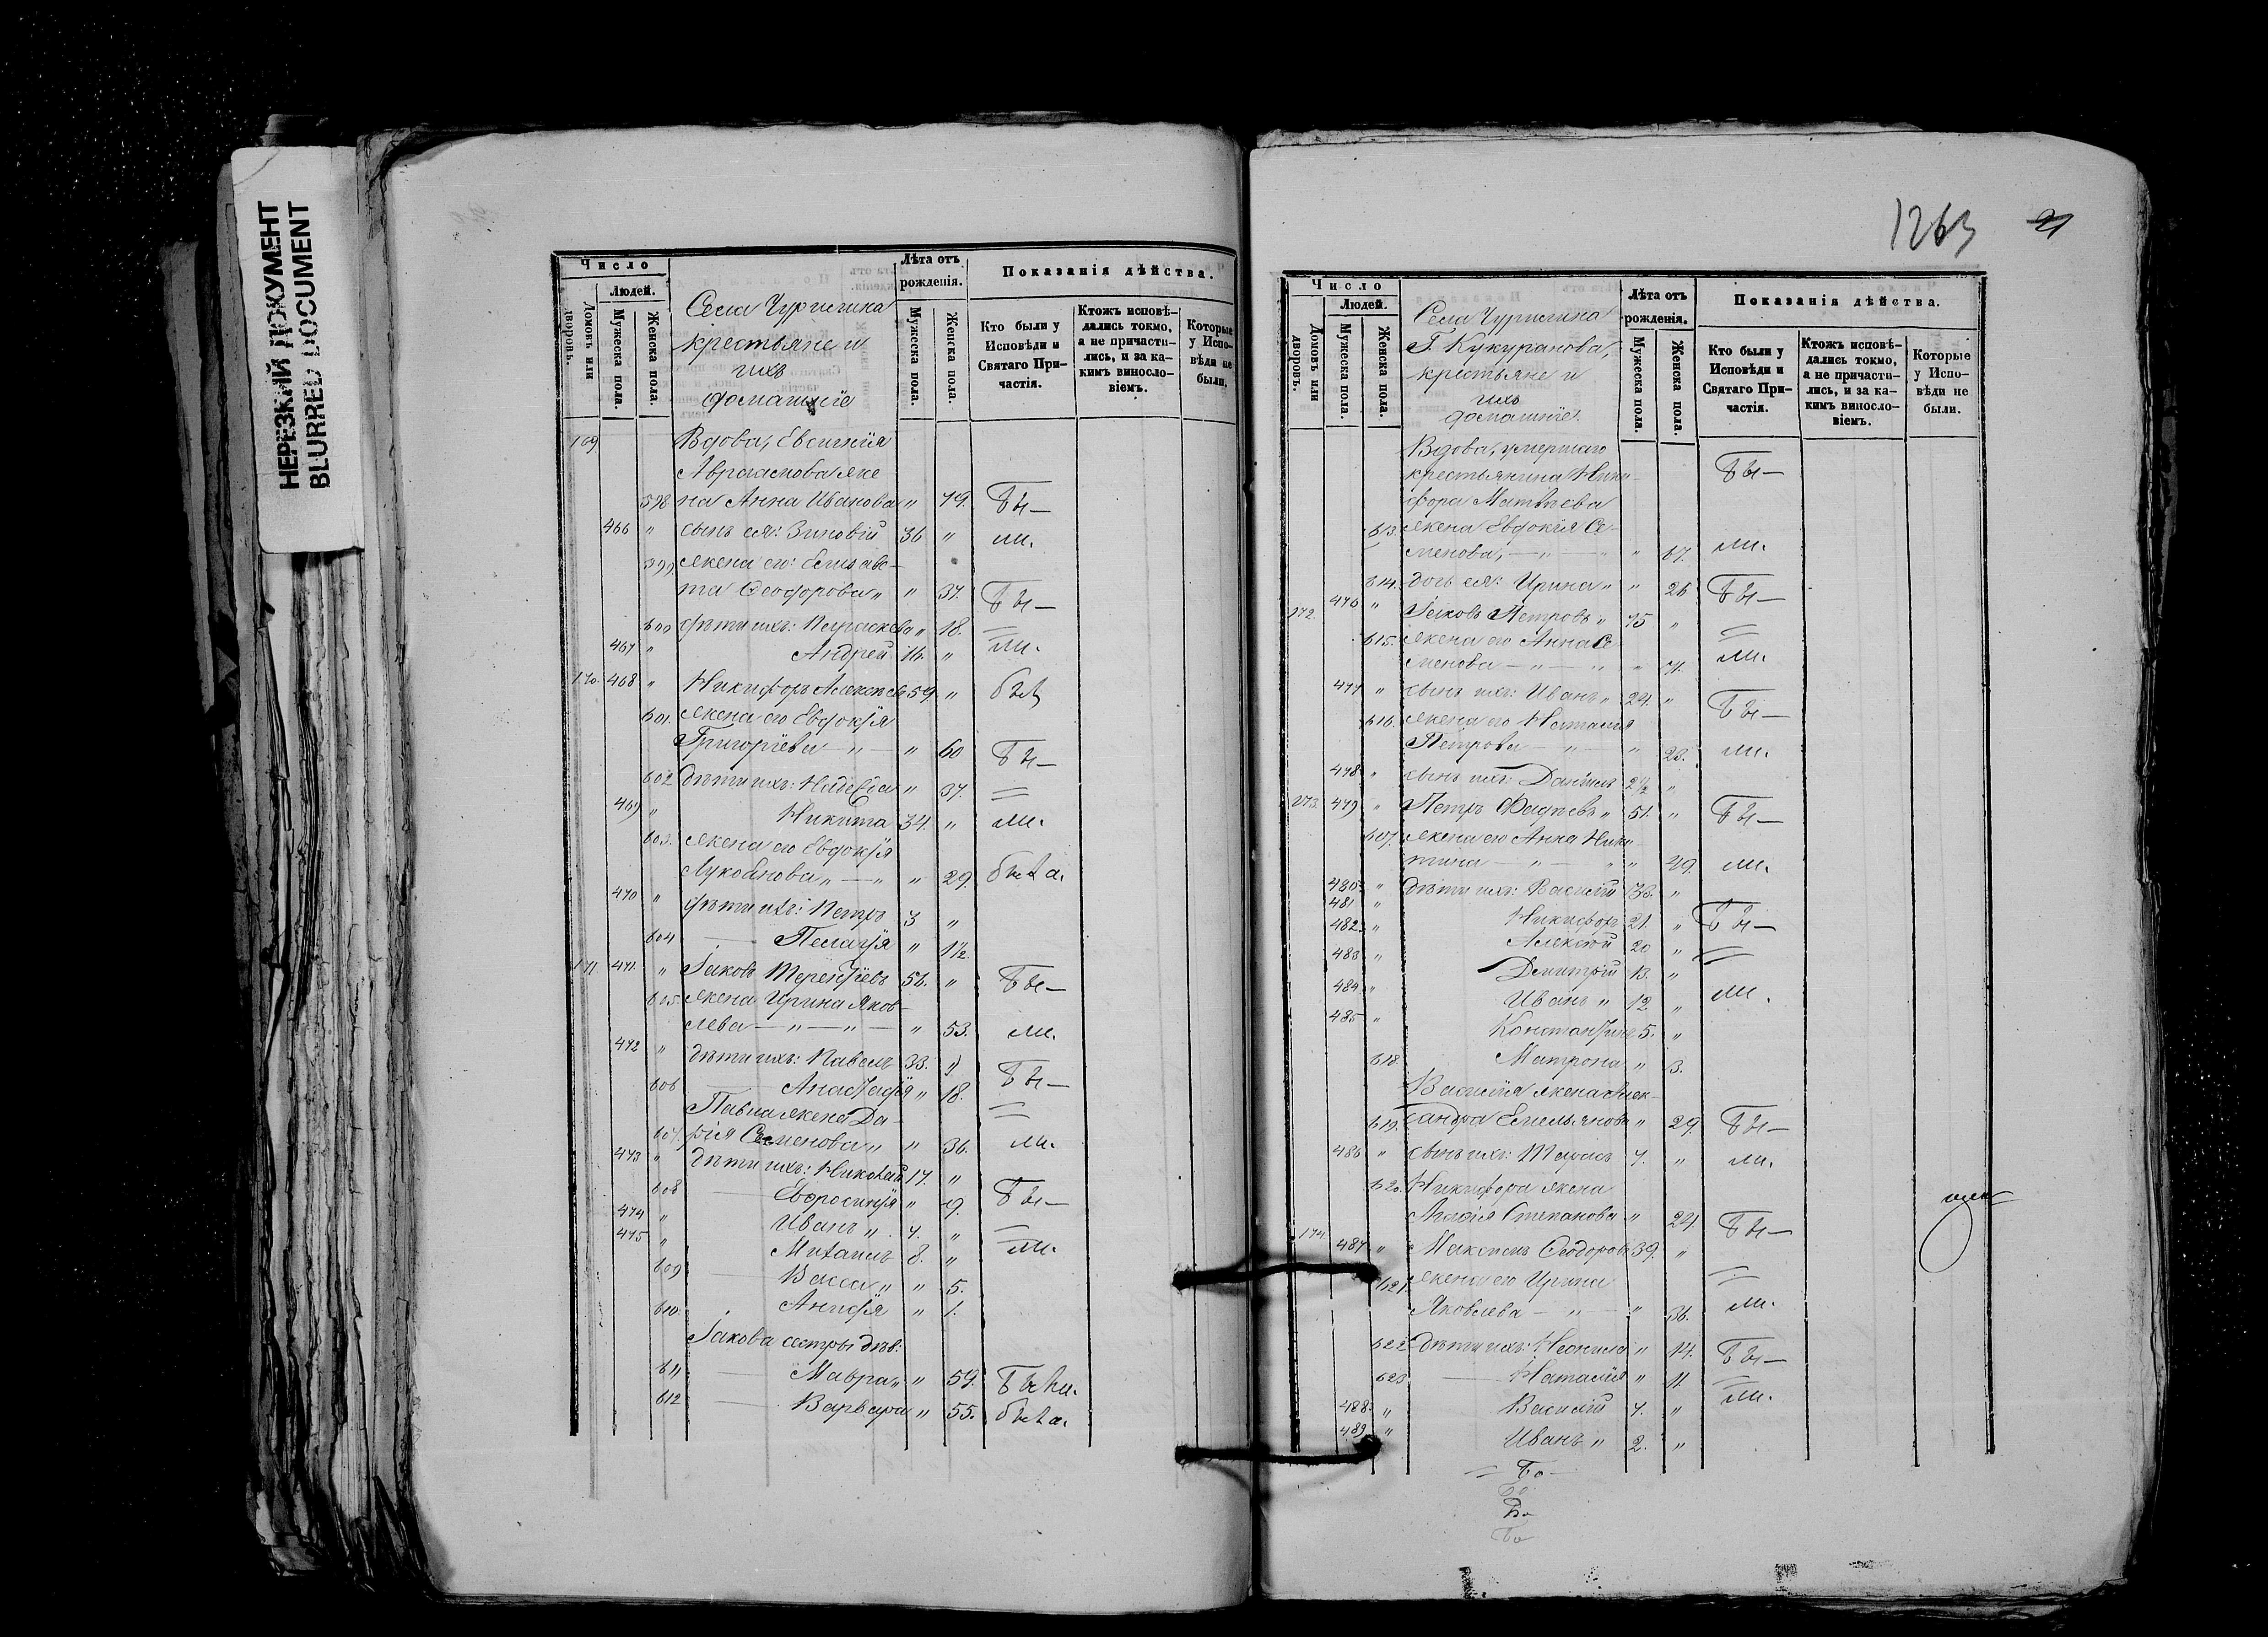 НЕРЕЗКИЙ ДОКУМЕНТ
BLURRED DOCUMENT
Число
Людей.
Домовъ или дворовъ.
Мужеска пола.
Женска пола.
Села Чуригина
крестьяне и
ихъ
домашніе
Лѣта отъ рожденія.
Мужеска пола.
Женска пола.
Показанія дѣйства.
Кто были у Исповѣди и Святаго Причастія.
Ктожъ исповѣдались токмо, а не причастились, и за какимъ винословіемъ.
Которые у Исповѣди не были.
169 Вдова,
жена
598 Анна Иванова " 79. Бы—
466 " сынъ ея: Зиновій 36 " ли.
599 жена его: Елисаве-
та Ѳеодорова " " 37. Бы—
600 дѣти ихъ: Параскева " 18. =
467 " Андрей 16. " ли.
170. 468 " Никифоръ Алексѣевъ 59. " былъ
601. жена его Евдокія
Григоріева — " — " 60 Бы—
602 дѣти ихъ: Надежда " 37. =
469 " Никита 34. " ли.
603. жена его Евдокія
" — " " 29. была.
470 " дѣти ихъ: Петръ 3 "
604 — Пелагія " 1½.
171 471. " Іаковъ Терентіевъ 56. " Бы—
605. жена Ирина Яков-
лева — " — " — " 53. ли.
472 " дѣти ихъ: Павелъ 33. " Бы—
606 — Анастасія " 18. =
Павла жена Да-
607. рія Семенова " " 36. ли.
473 " дѣти ихъ: Николай 17. "
608 — Евфросинія " 9. Бы—
474 " Иванъ " 7. " =
475 " Михаилъ 8. " ли.
609 — Васса " " 5.
610. Анисія " 1.
Іакова сестры дѣв:
611 — Мавра " " 59. Были.
612 — Варвара " 55. была.
1263 21
Число
Людей.
Домовъ или дворовъ.
Мужеска пола.
Женска пола.
Села Чуригина
Г. Кукуранова,
крестьяне и
ихъ
домашніе.
Лѣта отъ рожденія.
Мужеска пола.
Женска пола.
Показанія дѣйства.
Кто были у Исповѣди и Святаго Причастія.
Ктожъ исповѣдались токмо, а не причастились, и за какимъ винословіемъ.
Которые у Исповѣди не были.
Вдова, умершаго
крестьянина Ники- Бы—
фора Матвѣева
613. жена Евдокія Се-
менова, — " — " " 67. ли.
614. дочь ея: Ирина " " 26 Бы—
172. 476 " Іаковъ Петровъ " 75 " =
615. жена его Анна Се-
менова — " — " " 71. ли.
477 " сынъ ихъ: Иванъ " 24. "
616. жена его Наталія Бы—
Петрова — " — " 23. ли.
478. " сынъ ихъ: Даніилъ 2½ "
173. 479 " Петръ Фадѣевъ " 51. " Бы—
607. жена его Анна Ники-
тина — " — " " 49. ли.
480. " дѣти ихъ: Василій 33. "
481 "
482. " Никифоръ 21. " Бы—
Алексѣй 20 " =
483 " Димитрій 13. "
484. " Иванъ " 12 " ли.
485 " Константинъ 5. "
618. Матрона " 3.
Василія жена Алек-
619. сандра Емельянова " 29. Бы—
486 " сынъ ихъ: Тарасъ 7. " ли.
620. Никифора жена
Степанова " 24. Бы—
174. 487 " Максимъ Ѳеодоровъ 39. "
621. жена его Ирина =
Яковлева — " — " 36. ли.
622 дѣти ихъ: Неонила " 14. Бы—
623. — Наталія " 11. =
488. " Василій 7. " ли.
489 " Иванъ " 2. "
= Бо —
Бо
Бо
Бо